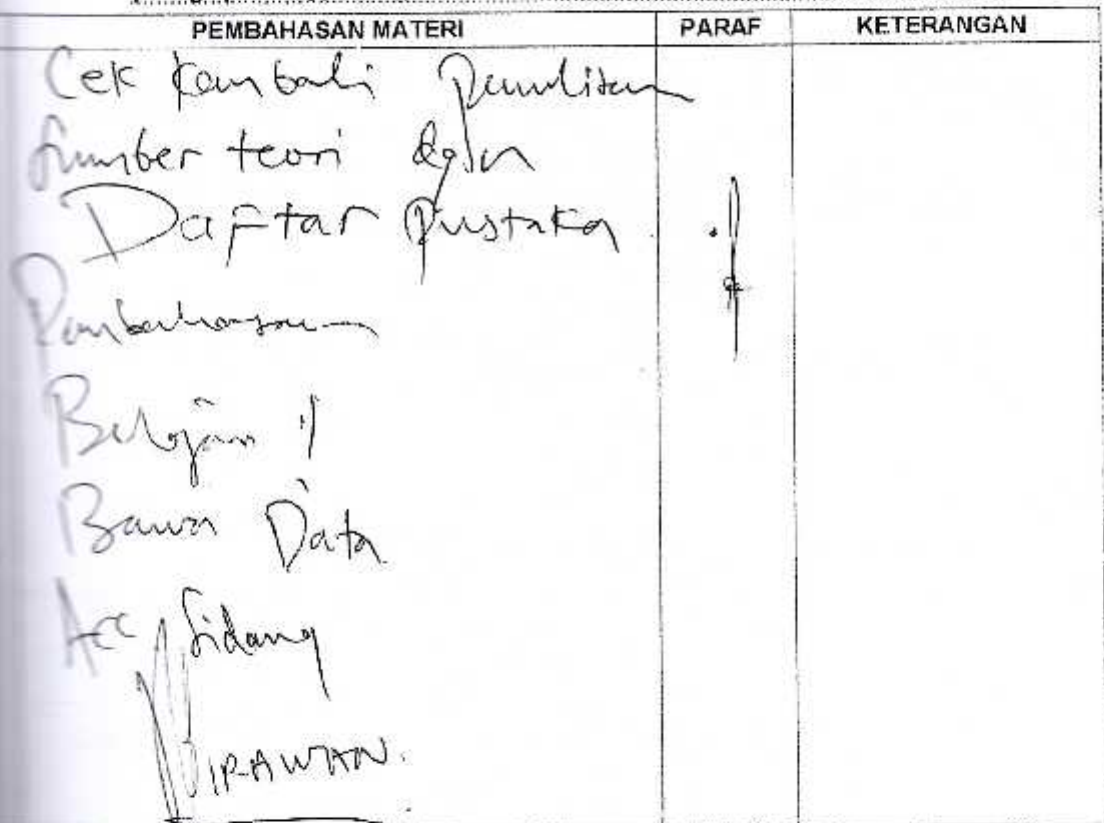 PEMBAHASAN MATERI PARAF KETERANGAN
Cek Kembali Penulisan
Sumber teori dgn
Daftar Pustaka
Pembahasan
Belajar !!
Bawa Data
Acc Sidang
WIRAWAN.